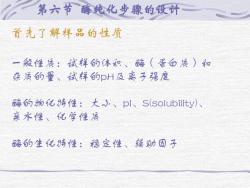 第六节 酶纯化步骤的设计
首先了解样品的性质
一般性质：试样的体积、酶（蛋白质）和
杂质的量、试样的pH及离子强度
酶的物化特性：大小、pI、S(solubility)、
亲水性、化学性质
酶的生化特性：稳定性、辅助因子